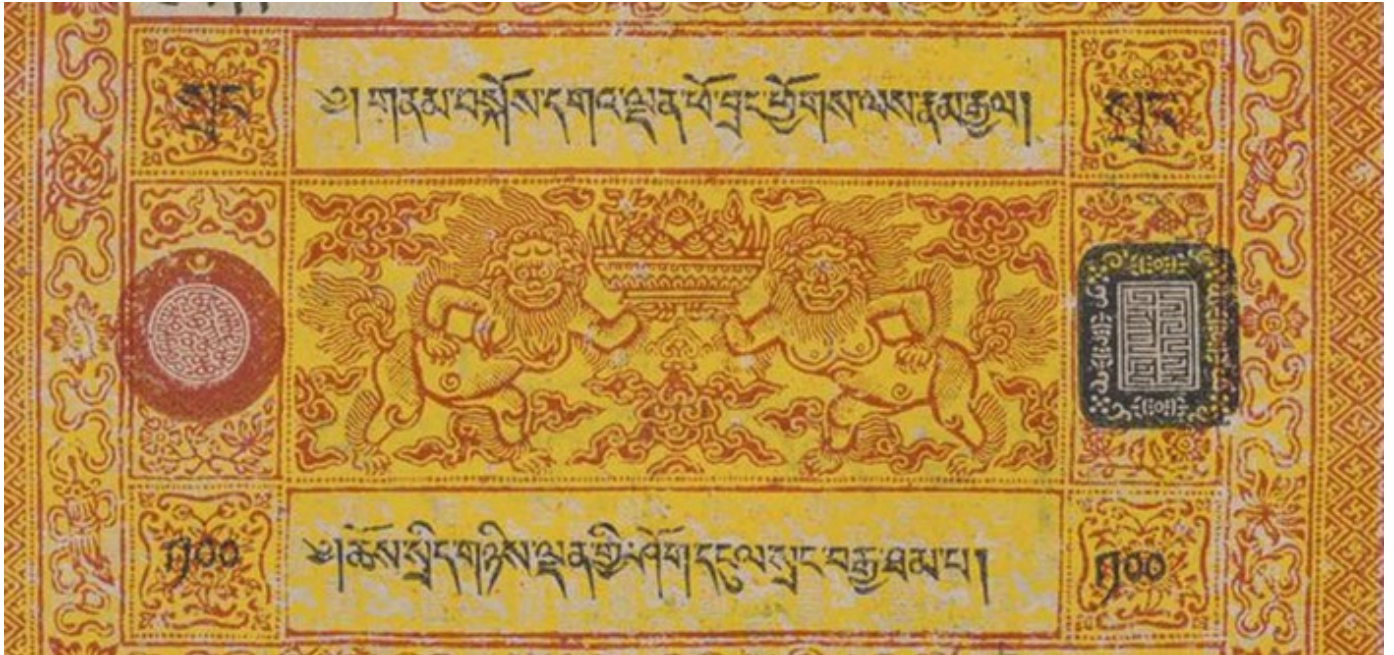 སྲང
༄། གནམ་བསྐོས་དགའ་ལྡན་ཕོ་བྲང་ཕྱོགས་ལས་རྣམ་རྒྱལ།
སྲང
༡༠༠
༄།ཆོས་སྲིད་གཉིས་ལྡན་གྱི་ཤོག་དངུལ་སྲང་བརྒྱ་ཐམ་པ།
༡༠༠